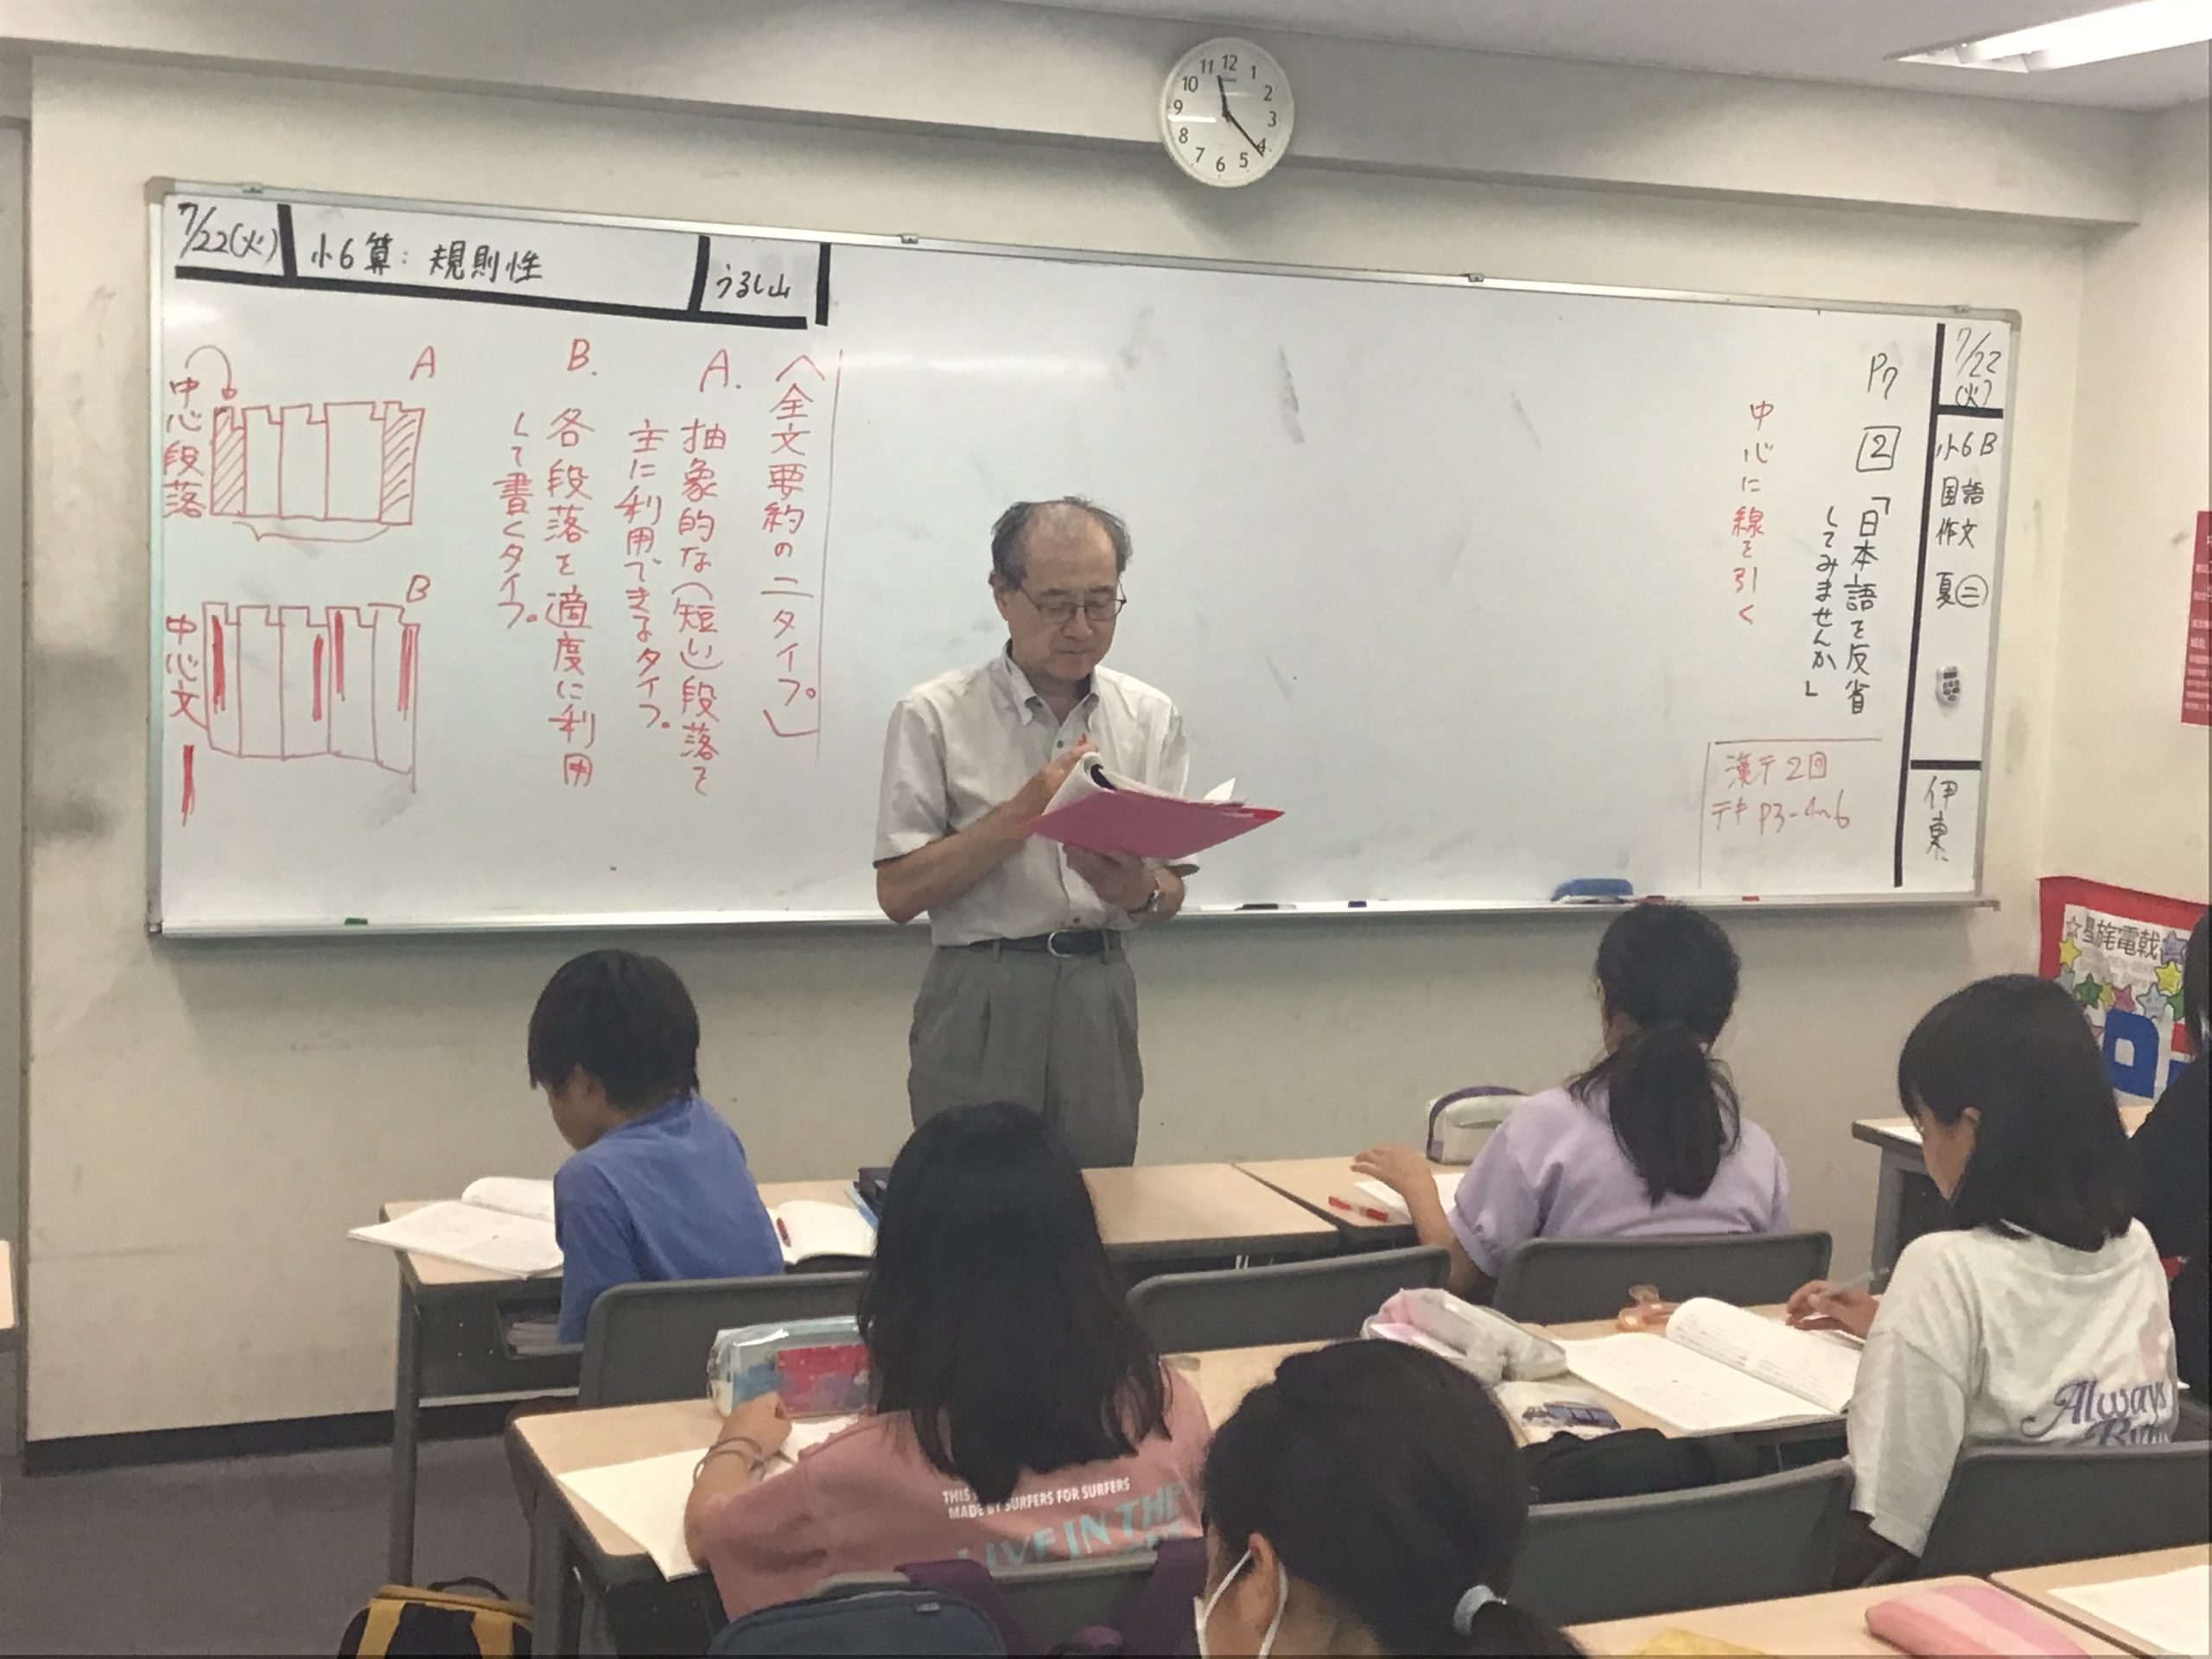 7/22(火)
小6算：規則性
うるし山
7/22(火)
小6B
国語
作文
夏㊁
伊東
P7 2 「日本語を反省
してみませんか」
中心に線を引く
漢テ2回
テキP3-4~6
〈全文要約の二タイプ。〉
A. 抽象的な(短い)段落を
主に利用できるタイプ。
B. 各段落を適度に利用
して書くタイプ。
A
中心段落
B
中心文
12
1
2
3
4
5
6
7
8
9
10
11
THIS
MADE BY SURFERS FOR SURFERS
LIVE IN THE
Always